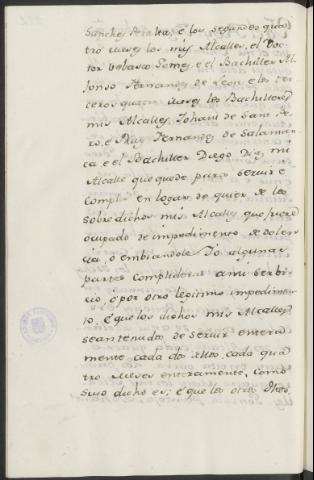 Sanches de la Vas, é los segundos qua
tro meses los mis Alcalles, el Doc
tor Velasco Gomes, e el Bachiller Al
fonso Fernandes de Leon, e los ter
ceros quatro meses los Bachilleres
mis Alcalles, Johan de Sant
ro, é Ruy Fernandes de Salaman
ca, e el Bachiller Diego Dias, mi
Alcalle que quede para servir e
Complir en logar de quier de los
sobredichos mis Alcalles, que fuere
ocupado de impedimento de dolen
cia, ó embiandole Yo a algunas
partes complideras a mi servi
cio, ó por otro legitimo impedimen
to, é que los dichos mis Alcalles
sean tenudos de servir entera
mente cada do dellos, cada qua
tro meses enteramente, como
suso dicho es; é que los otros dhos